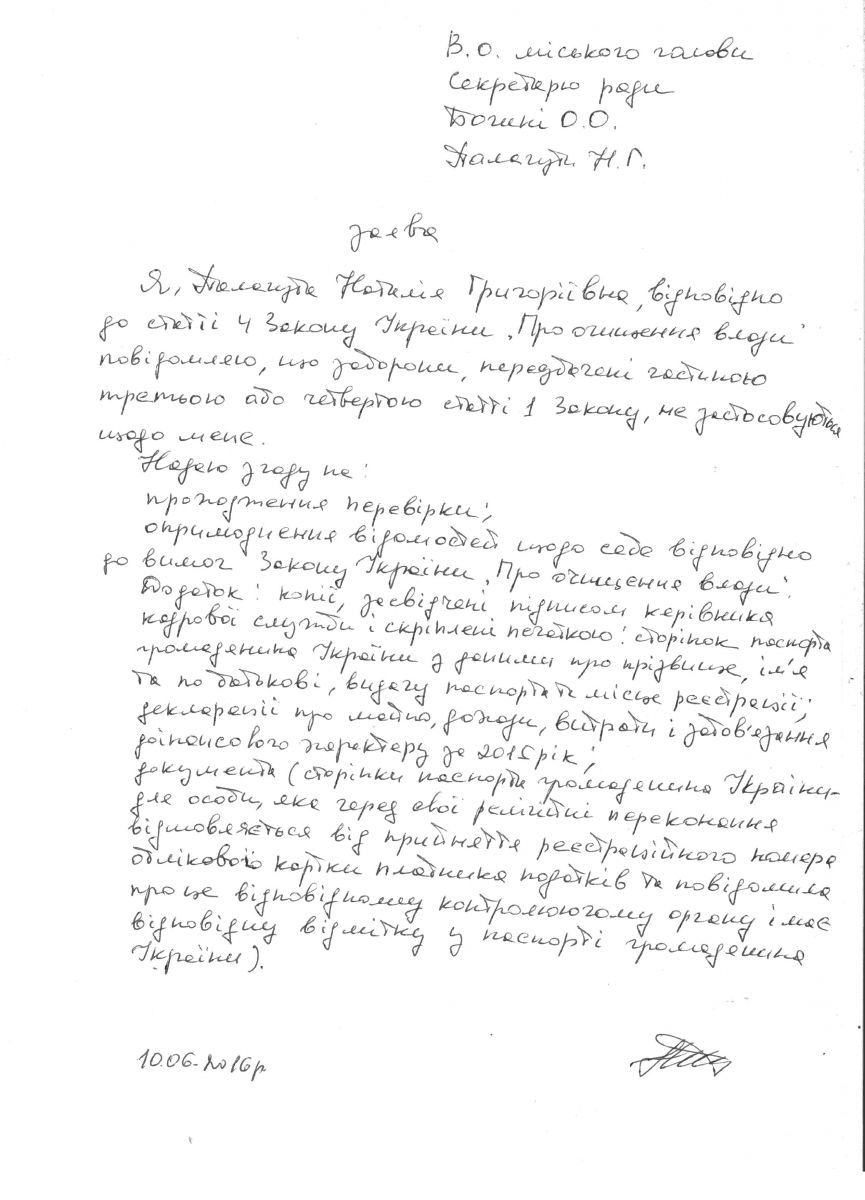 В.О. міського голови
Секретарю ради
Богині О.О.
Палагути Н.Г.
заява
Я, Палагута Наталія Григоріївна, відповідно
до статті 4 Закону України „Про очищення влади"
повідомляю, що заборони, передбачені частиною
третьою або четвертою статті 1 Закону, не застосовуються
щодо мене.
Надаю згоду на:
проходження перевірки;
оприлюднення відомостей щодо себе відповідно
до вимог Закону України „Про очищення влади".
Додаток: копії, засвідчені підписом керівника
кадрової служби і скріплені печаткою: сторінок паспорта
громадянина України з даними про прізвище, ім'я
та по батькові, видачу паспорта та місце реєстрації;
декларації про майно, доходи, витрати і зобов'язання
фінансового характеру за 2015 рік;
документа (сторінки паспорта громадянина України-
для особи, яка через свої релігійні переконання
відмовляється від прийняття реєстраційного номера
облікової картки платника податків та повідомила
про це відповідному контролюючому органу і має
відповідну відмітку у паспорті громадянина
України).
10.06.2016р